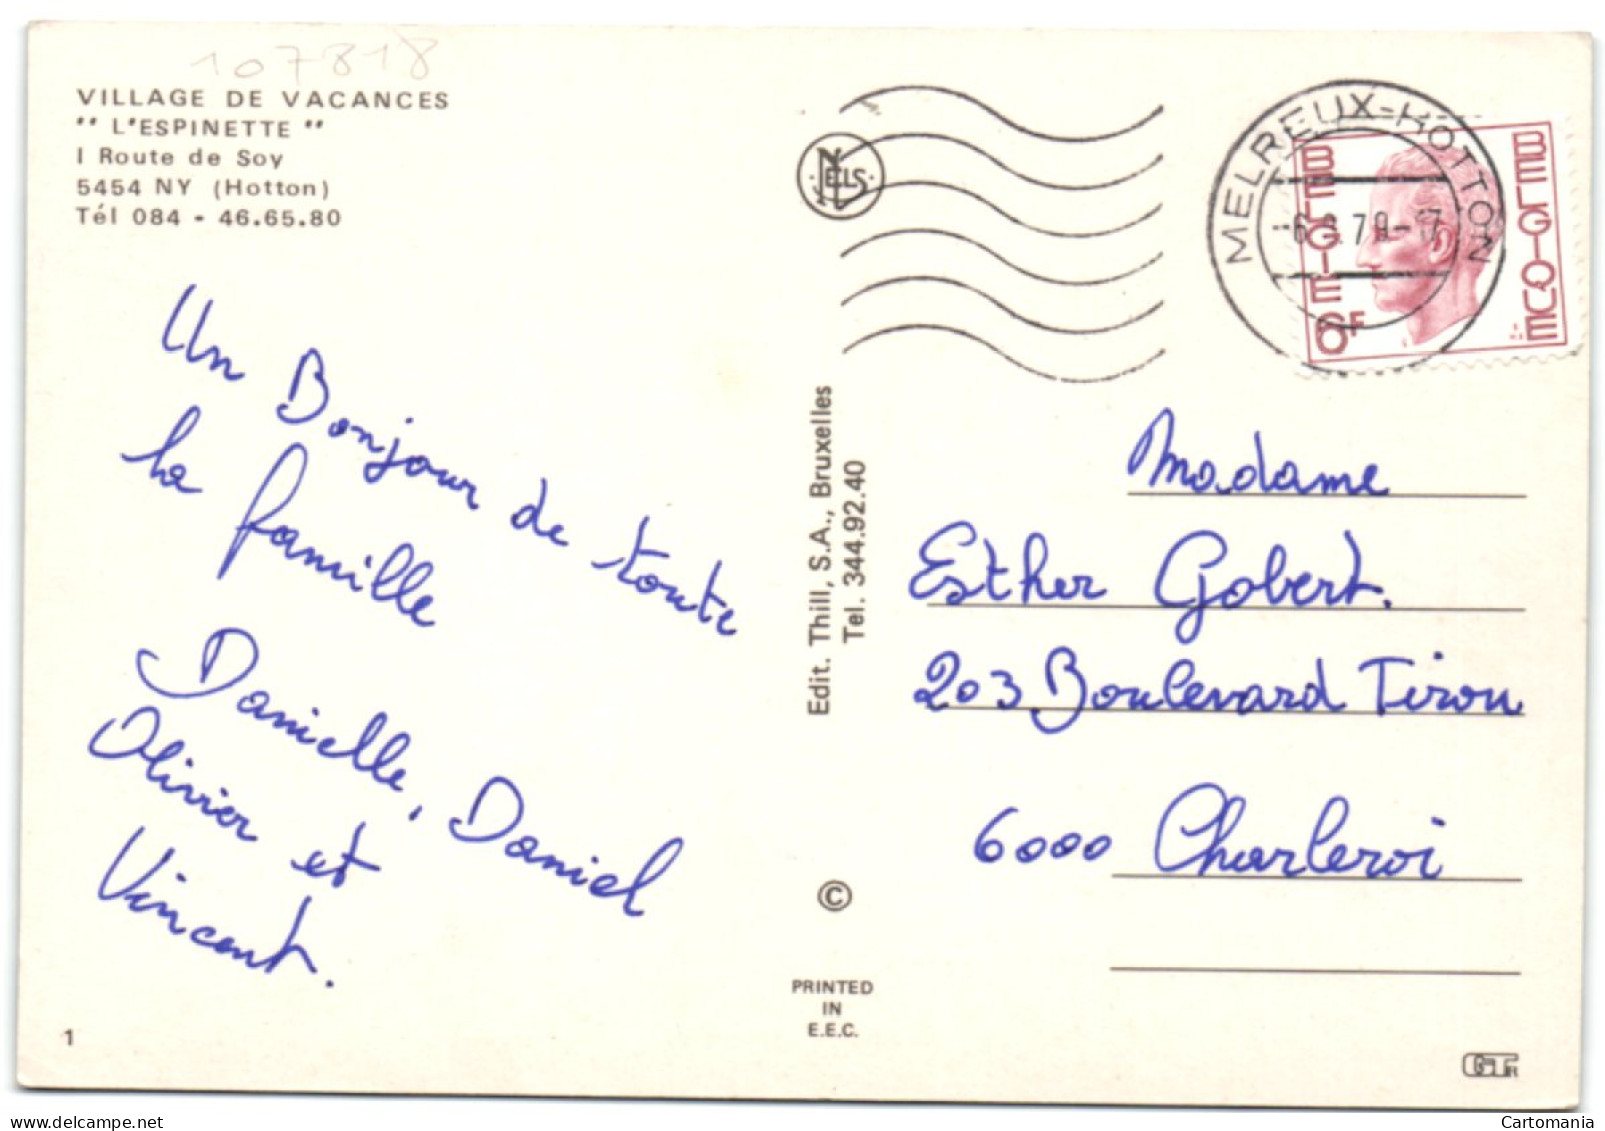 107818
VILLAGE DE VACANCES
" L'ESPINETTE "
1 Route de Soy
5454 NY (Hotton)
Tél 084 - 46.65.80
Un Bonjour de toute
la famille
Danielle, Daniel
Olivier et
Vincent.
1
NELS
Edit. Thill, S.A., Bruxelles
Tel. 344.92.40
©
PRINTED
IN
E.E.C.
MELREUX-HOTTON
BELGIE
BELGIQUE
6F
Madame
Esther Gobert.
203 Boulevard Tirou
6000 Charleroi
www.delcampe.net
Cartomania